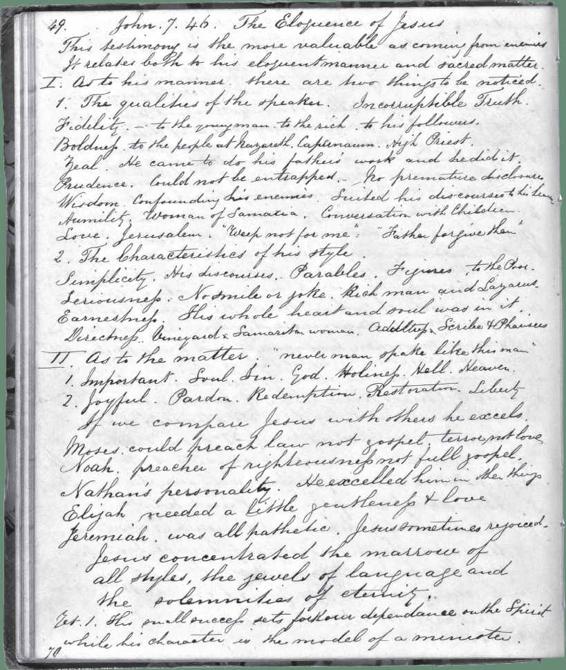 49. John. 7. 46. The Eloquence of Jesus
This testimony is the more valuable as coming from enemies
It relates both to his eloquent manner and sacred matter.
I. As to his manner. there are two things to be noticed.
1. The qualities of the speaker. Incorruptible Truth.
Fidelity. — to the young man. to the rich. to his followers.
Boldness. to the people at Nazareth. Capernaum. High Priest.
Zeal. He came to do his father's work and he did it.
Prudence. Could not be entrapped. — No premature disclosure
Wisdom. Confounding his enemies. Suited his discourses to his
Humility. Woman of Samaria. Conversation with Children.
Love. Jerusalem. "Weep not for me": "Father forgive them"
2. The Characteristics of his style.
Simplicity. His discourses. Parables. Figures. to the Poor.
Seriousness. No smile or joke. Rich man and Lazarus.
Earnestness. His whole heart and soul was in it.
Directness. Vineyard. Samaritan woman. Scribes & Pharisees
II As to the matter. "never man spake like this man"
1. Important. Soul. Sin. God. Holiness. Hell. Heaven.
2. Joyful. Pardon. Redemption. Restoration. Liberty
If we compare Jesus with others he excels.
Moses. could preach law not gospel, terror, not love
Noah. preacher of righteousness not full gospel.
Nathan's personality. He excelled him in other things
Elijah needed a little gentleness & love
Jeremiah. was all pathetic. Jesus sometimes rejoiced.
Jesus concentrated the marrow of
all styles, the jewels of language and
the solemnities of eternity.
1. His small success sets forth our dependance on the Spirit
while his character is the model of a minister.
70